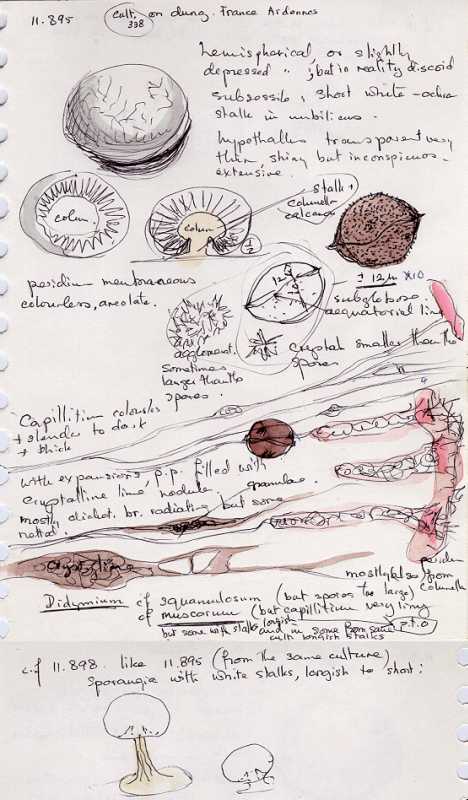 11.895 cult. 338 on dung. France Ardennes
hemispherical, or slightly
depressed " ; but in reality discoid
subsessile, short white-ochra
stalk in umbilicus.
hypothallus transparent very
thin, shiny but inconspicuous.
extensive.
stalk +
columella
calcareous
colum.
colum
1/2
peridium membraneous
colourless, areolate.
12 µ
± 12 µ x10
subglobose.
aequatorial line
agglomerat.
sometimes
larger than the
spores.
Crystal smaller than the
spores
Capillitium colourless
+ slender to dark
+ thick
with expansions, p.p. filled with
crystalline lime nodule granular.
mostly dichot. br. radiating but some
netted.
crystalline
peridium
mostly from
columella
Didymium cf squamulosum (but spores too large)
cf muscorum (but capillitium very limy
but some with stalks longish and in some from same
cult. longish stalks
P.T.O
c.f 11.898. like 11.895 (from the same culture)
sporangia with white stalks, longish to short: